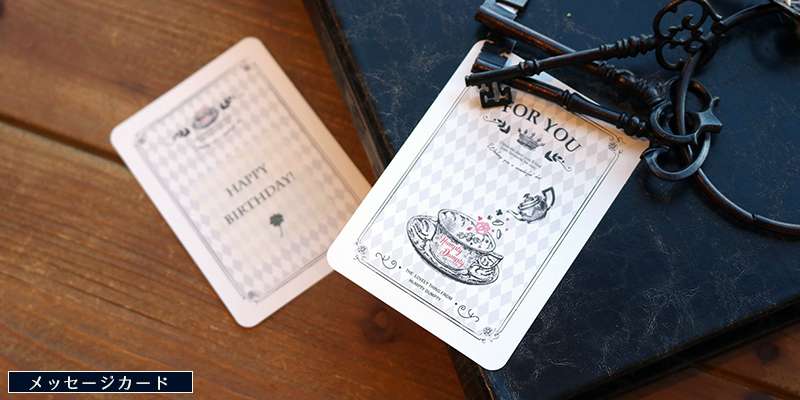 HAPPY
BIRTHDAY!
FOR YOU
Humpty
Dumpty
THE LOVELY THING FROM
HUMPTY DUMPTY
メッセージカード